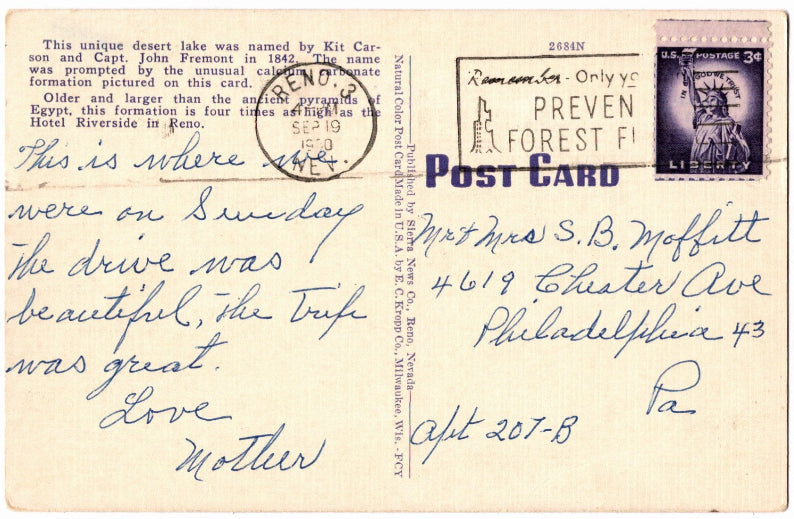 This unique desert lake was named by Kit Car-
son and Capt. John Fremont in 1842. The name
was prompted by the unusual calcium carbonate
formation pictured on this card.
Older and larger than the ancient pyramids of
Egypt, this formation is four times as high as the
Hotel Riverside in Reno.
This is where we
were on Sunday
The drive was
beautiful, The Trip
was great.
Love
Mother
RENO. 3
SEP 19
NEV.
Natural Color Post Card Made in U.S.A. by E. C. Kropp Co., Milwaukee, Wis. -FCY
Published by Sierra News Co., Reno, Nevada
2684N
Remember - Only yo
PREVEN
FOREST FI
U.S. POSTAGE 3¢
IN GOD WE TRUST
LIBERTY
POST CARD
Mr & Mrs S. B. Moffitt
4619 Chester Ave
Philadelphia 43
Pa
Apt 207-B